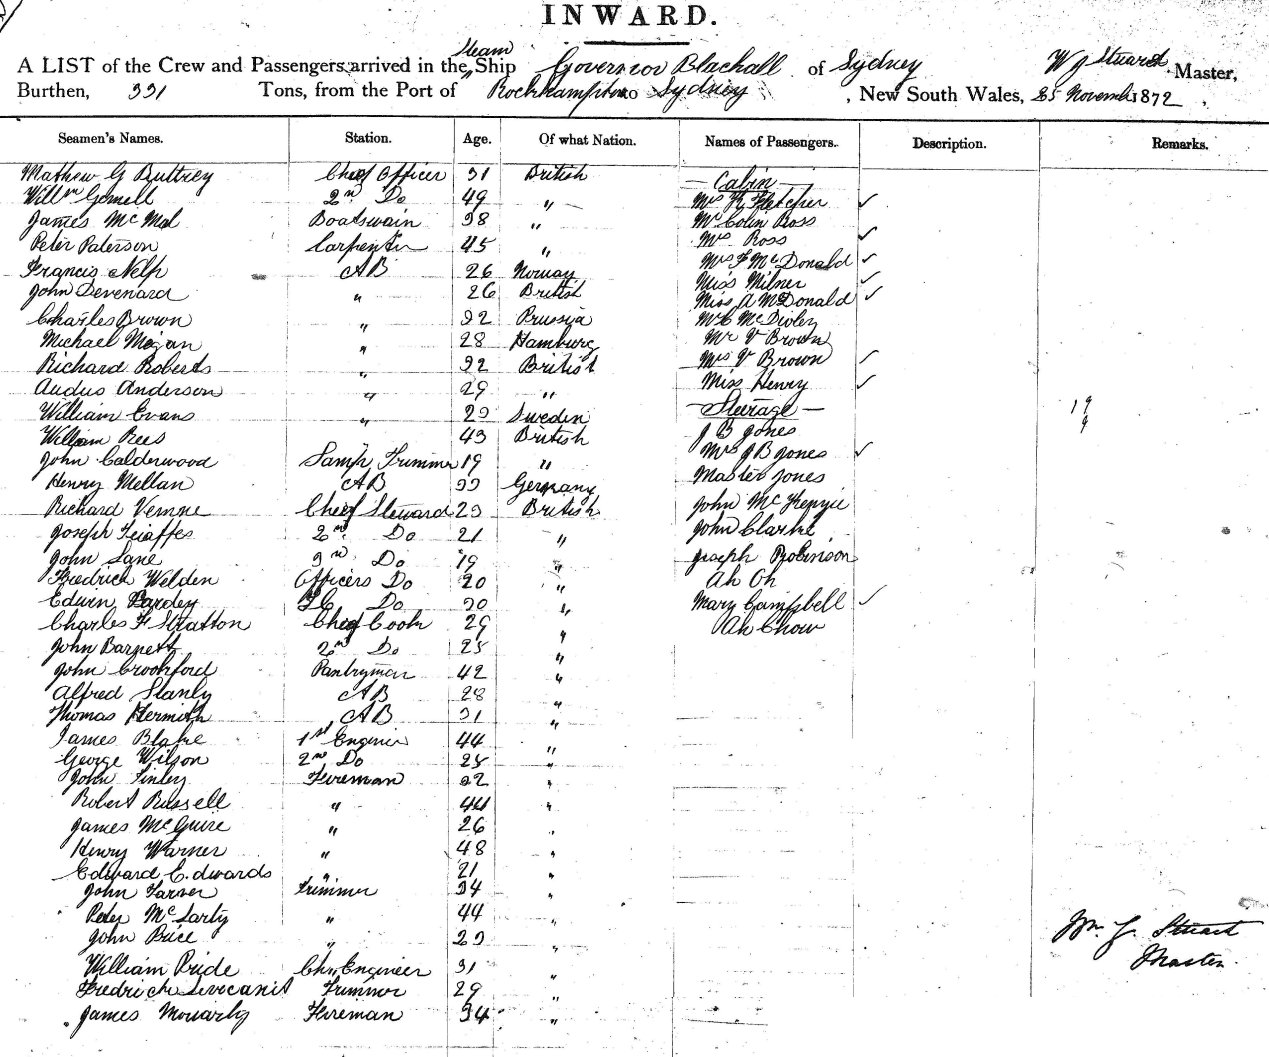 INWARD.
Steam
A LIST of the Crew and Passengers arrived in the Ship Governor Blackall of Sydney W J Stuard Master,
Burthen, 331 Tons, from the Port of Rockhampton to Sydney, New South Wales, 25 November 1872,
Seamen's Names. Station. Age. Of what Nation. Names of Passengers. Description. Remarks.
Mathew G Buttrey Chief Officer 31 British Cabin
Willm Gemell 2nd Do 49 " Mrs H Fletcher ✓
James McMal Boatswain 38 " Mr Colin Ross
Peter Paterson Carpenter 45 " Mrs Ross ✓
Francis AB 26 Norway Mrs F McDonald ✓
John Devenard " 26 British Miss Milner ✓
Miss A McDonald ✓
Charles Brown " 32 Prussia
Michael " 28 Hamburg Mr V Brown
Richard Roberts " 32 British Mrs V Brown ✓
Audus Anderson " 29 " Miss Henry ✓
William Evans " 23 Sweden Steerage 19
William Rees 43 British J B Jones 9
John Calderwood Lamp Trimmer 19 " Mrs J B Jones ✓
Henry Mellan AB 33 Germany Master Jones
Richard Chief Steward 23 British John McKenzie
Joseph 2nd Do 21 " John Clarke
John Lane 3rd Do 19 " Joseph Robinson
Fredrick Welden Officers Do 20 " Ah On
Edwin Do 30 " Mary Campbell ✓
Charles F Stratton Chief Cook 29 " Ah Chow
John Barnett 2nd Do 25 "
John Crookford Pantryman 42 "
Alfred Stanly AB 28 "
Thomas AB 31 "
James Blake 1st Enginer 44 "
George Wilson 2nd Do 25 "
John Finley Fireman 22 "
Robert Russell " 44 "
James McGuire " 26 "
Henry Warner " 48 "
Edward Edwards " 21 "
John Trimmer 34 "
Peter McLarty " 44 "
John Price " 23 "
William Pride Chf Engineer 31 "
Fredrick Trimmer 29 "
James Fireman 34 "
Wm. J. Stuart
Master.